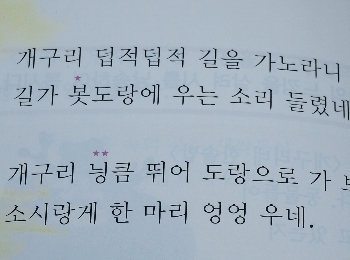 개구리 덥적덥적 길을 가노라니
길가 봇도랑에 우는 소리 들렸네
개구리 닁큼 뛰어 도랑으로 가 보
소시랑게 한 마리 엉엉 우네.